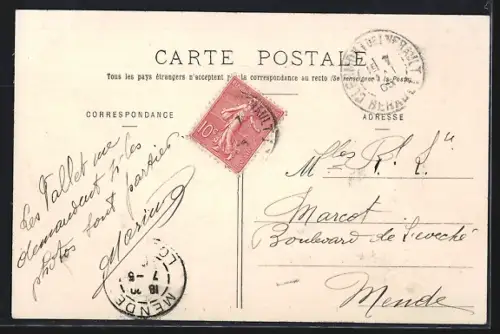 CARTE POSTALE
Tous les pays étrangers n'acceptent pas la correspondance au recto (Se renseigner à la Poste)
CORRESPONDANCE
ADRESSE
Les Vallet me
demandent si les
photos sont parties
Marius
10c
Mlles
Marcot
Boulevard de
Mende
MENDE
HERAULT